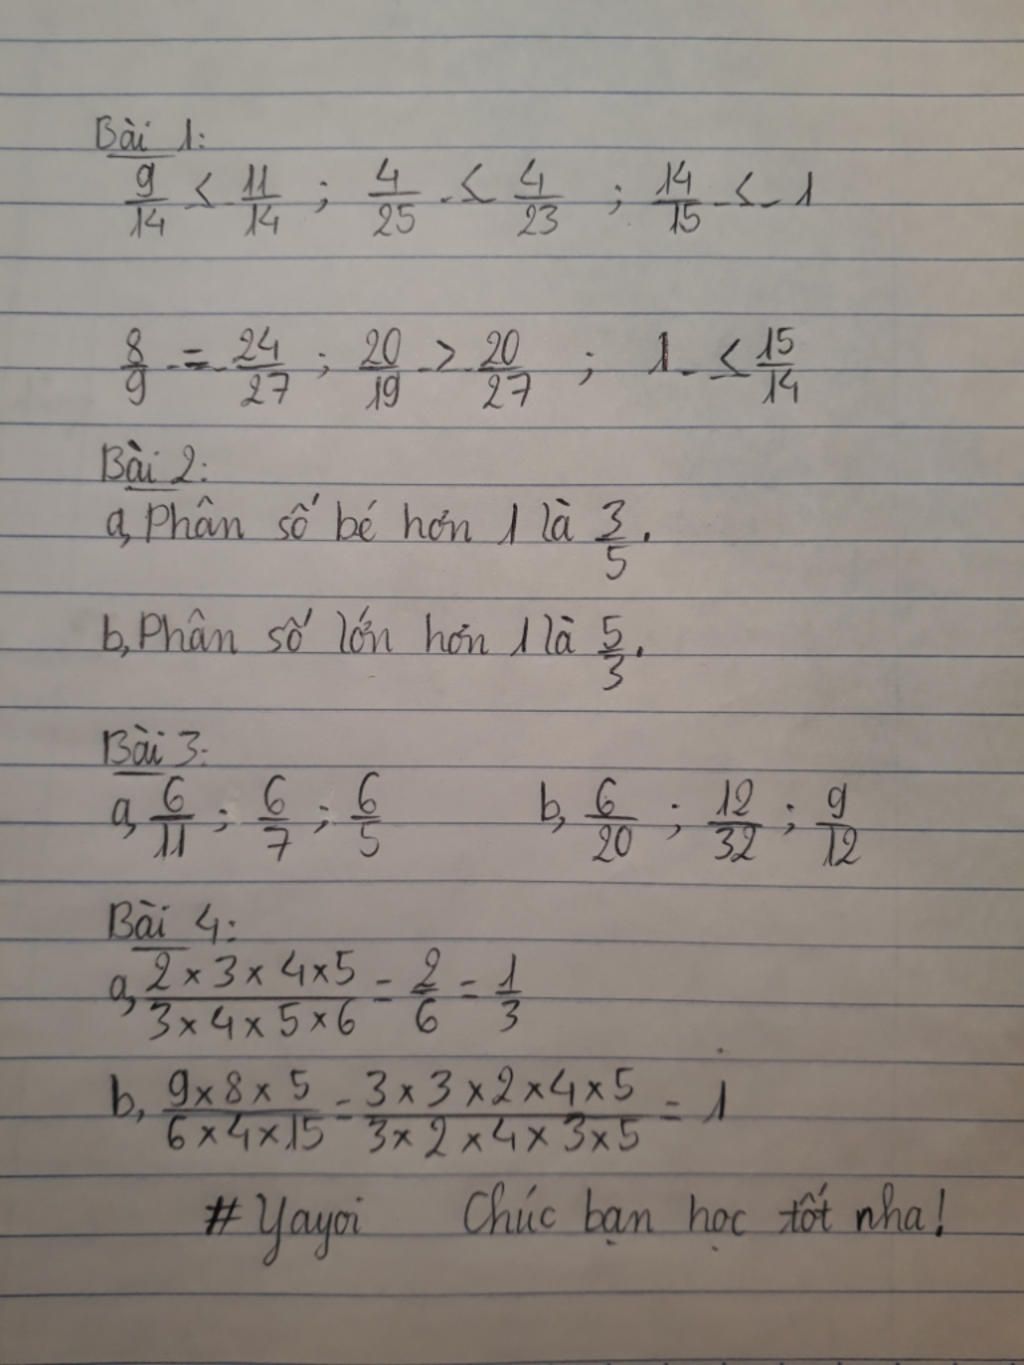 Bài 1:
9/14 < 11/14 ; 4/25 < 4/23 ; 14/15 < 1
8/9 = 24/27 ; 20/19 > 20/27 ; 1 < 15/14
Bài 2:
a, Phân số bé hơn 1 là 3/5.
b, Phân số lớn hơn 1 là 5/3.
Bài 3:
a, 6/11 ; 6/7 ; 6/5 b, 6/20 ; 12/32 ; 9/12
Bài 4:
a, 2×3×4×5/3×4×5×6 = 2/6 = 1/3
b, 9×8×5/6×4×15 = 3×3×2×4×5/3×2×4×3×5 = 1
#Yayoi Chúc bạn học tốt nha!